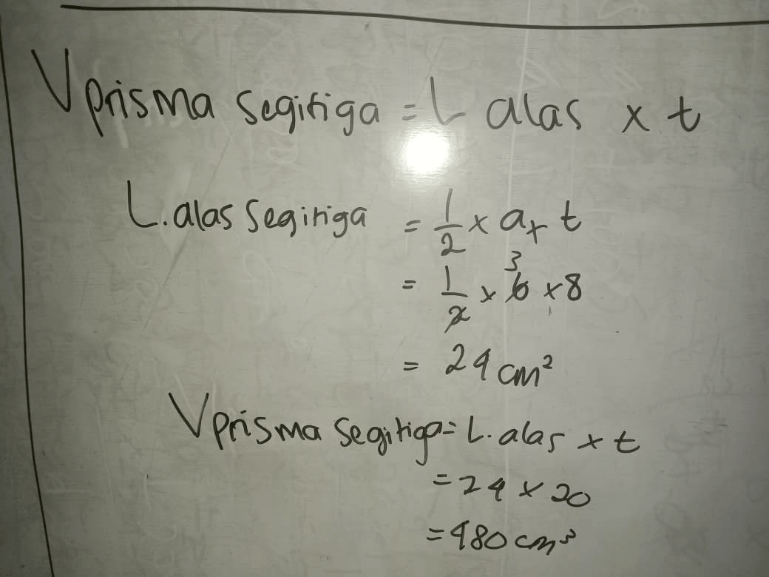 V prisma segitiga = L alas x t
L. alas segitiga = 1/2 x a x t
= 1/2 x 6 3 x 8
= 24 cm²
V prisma segitiga = L. alas x t
= 24 x 20
= 480 cm³